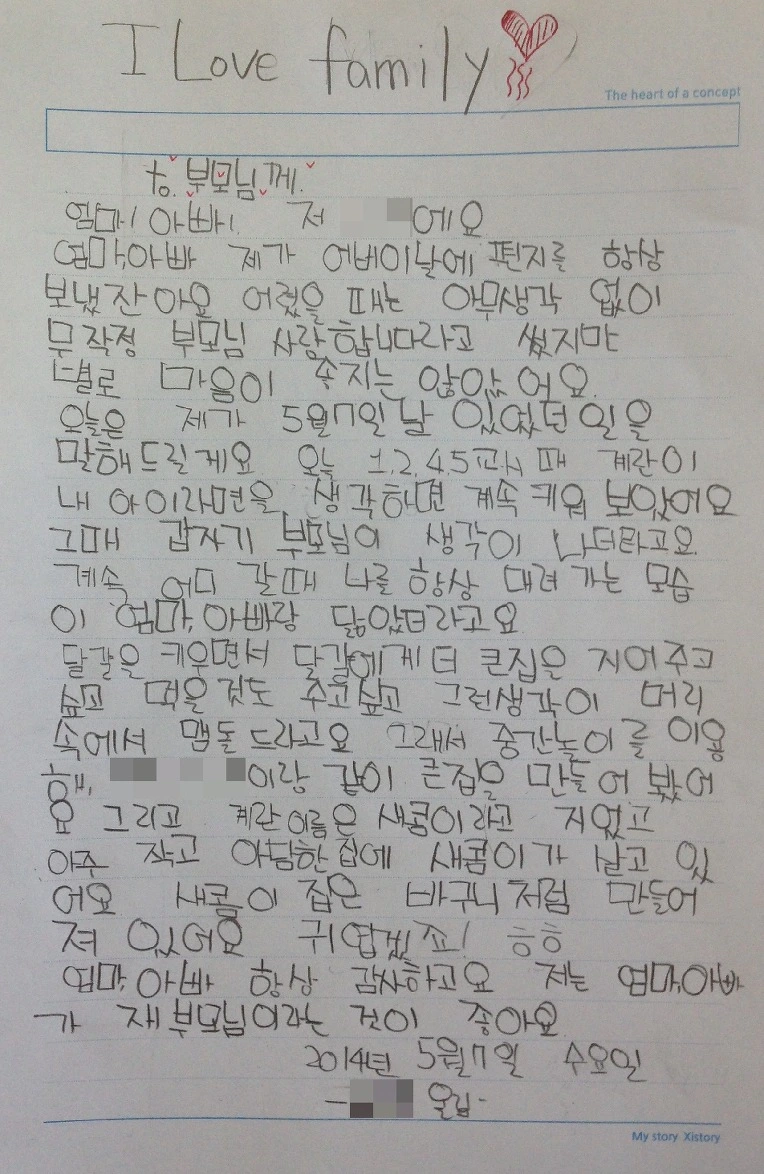 I Love family
The heart of a concept
to. 부모님께.
엄마! 아빠! 저 에요
엄마,아빠 제가 어버이날에 편지를 항상
보냈잔아요 어렸을 때는 아무생각 없이
무작정 부모님 사랑합니다라고 썼지만
별로 마음이 좋지는 않았어요.
오늘은 제가 5월7일날 있었던 일을
말해드릴게요 오늘 1,2,4,5교시 때 계란이
내 아이라면을 생각하면 계속 키워 보았어요
그때 갑자기 부모님의 생각이 나더라고요.
계속 어디 갈때 나를 항상 대려 가는 모습
이 엄마,아빠랑 닮았더라고요
달걀을 키우면서 달걀에게 더 큰집을 지어주고
싶고 먹을것도 주고싶고 그런생각이 머리
속에서 맴돌드라고요 그래서 중간놀이를 이용
해, 이랑 같이 큰집을 만들어 봤어
요 그리고 계란이름은 새콤이라고 지었고
아주 작고 아담한집에 새콤이가 살고 있
어요 새콤이 집은 바구니처럼 만들어
져 있어요 귀엽겠죠! ㅎㅎ
엄마,아빠 항상 감사하고요 저는 엄마,아빠
가 재부모님이라는 것이 좋아요
2014년 5월7일 수요일
- 올림-
My story Xistory